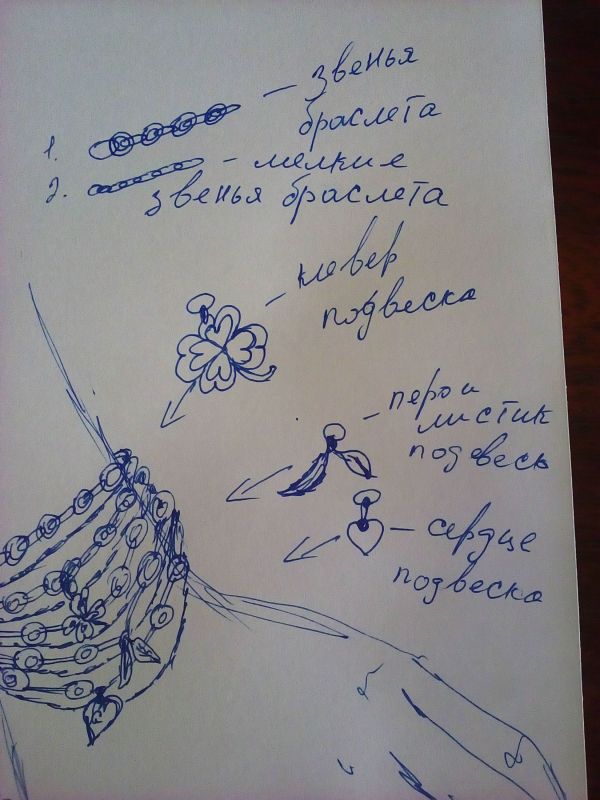 1. – звенья
браслета
2. – мелкие
звенья браслета
– клевер
подвеска
– перо и
листик
подвесь
– сердце
подвеска